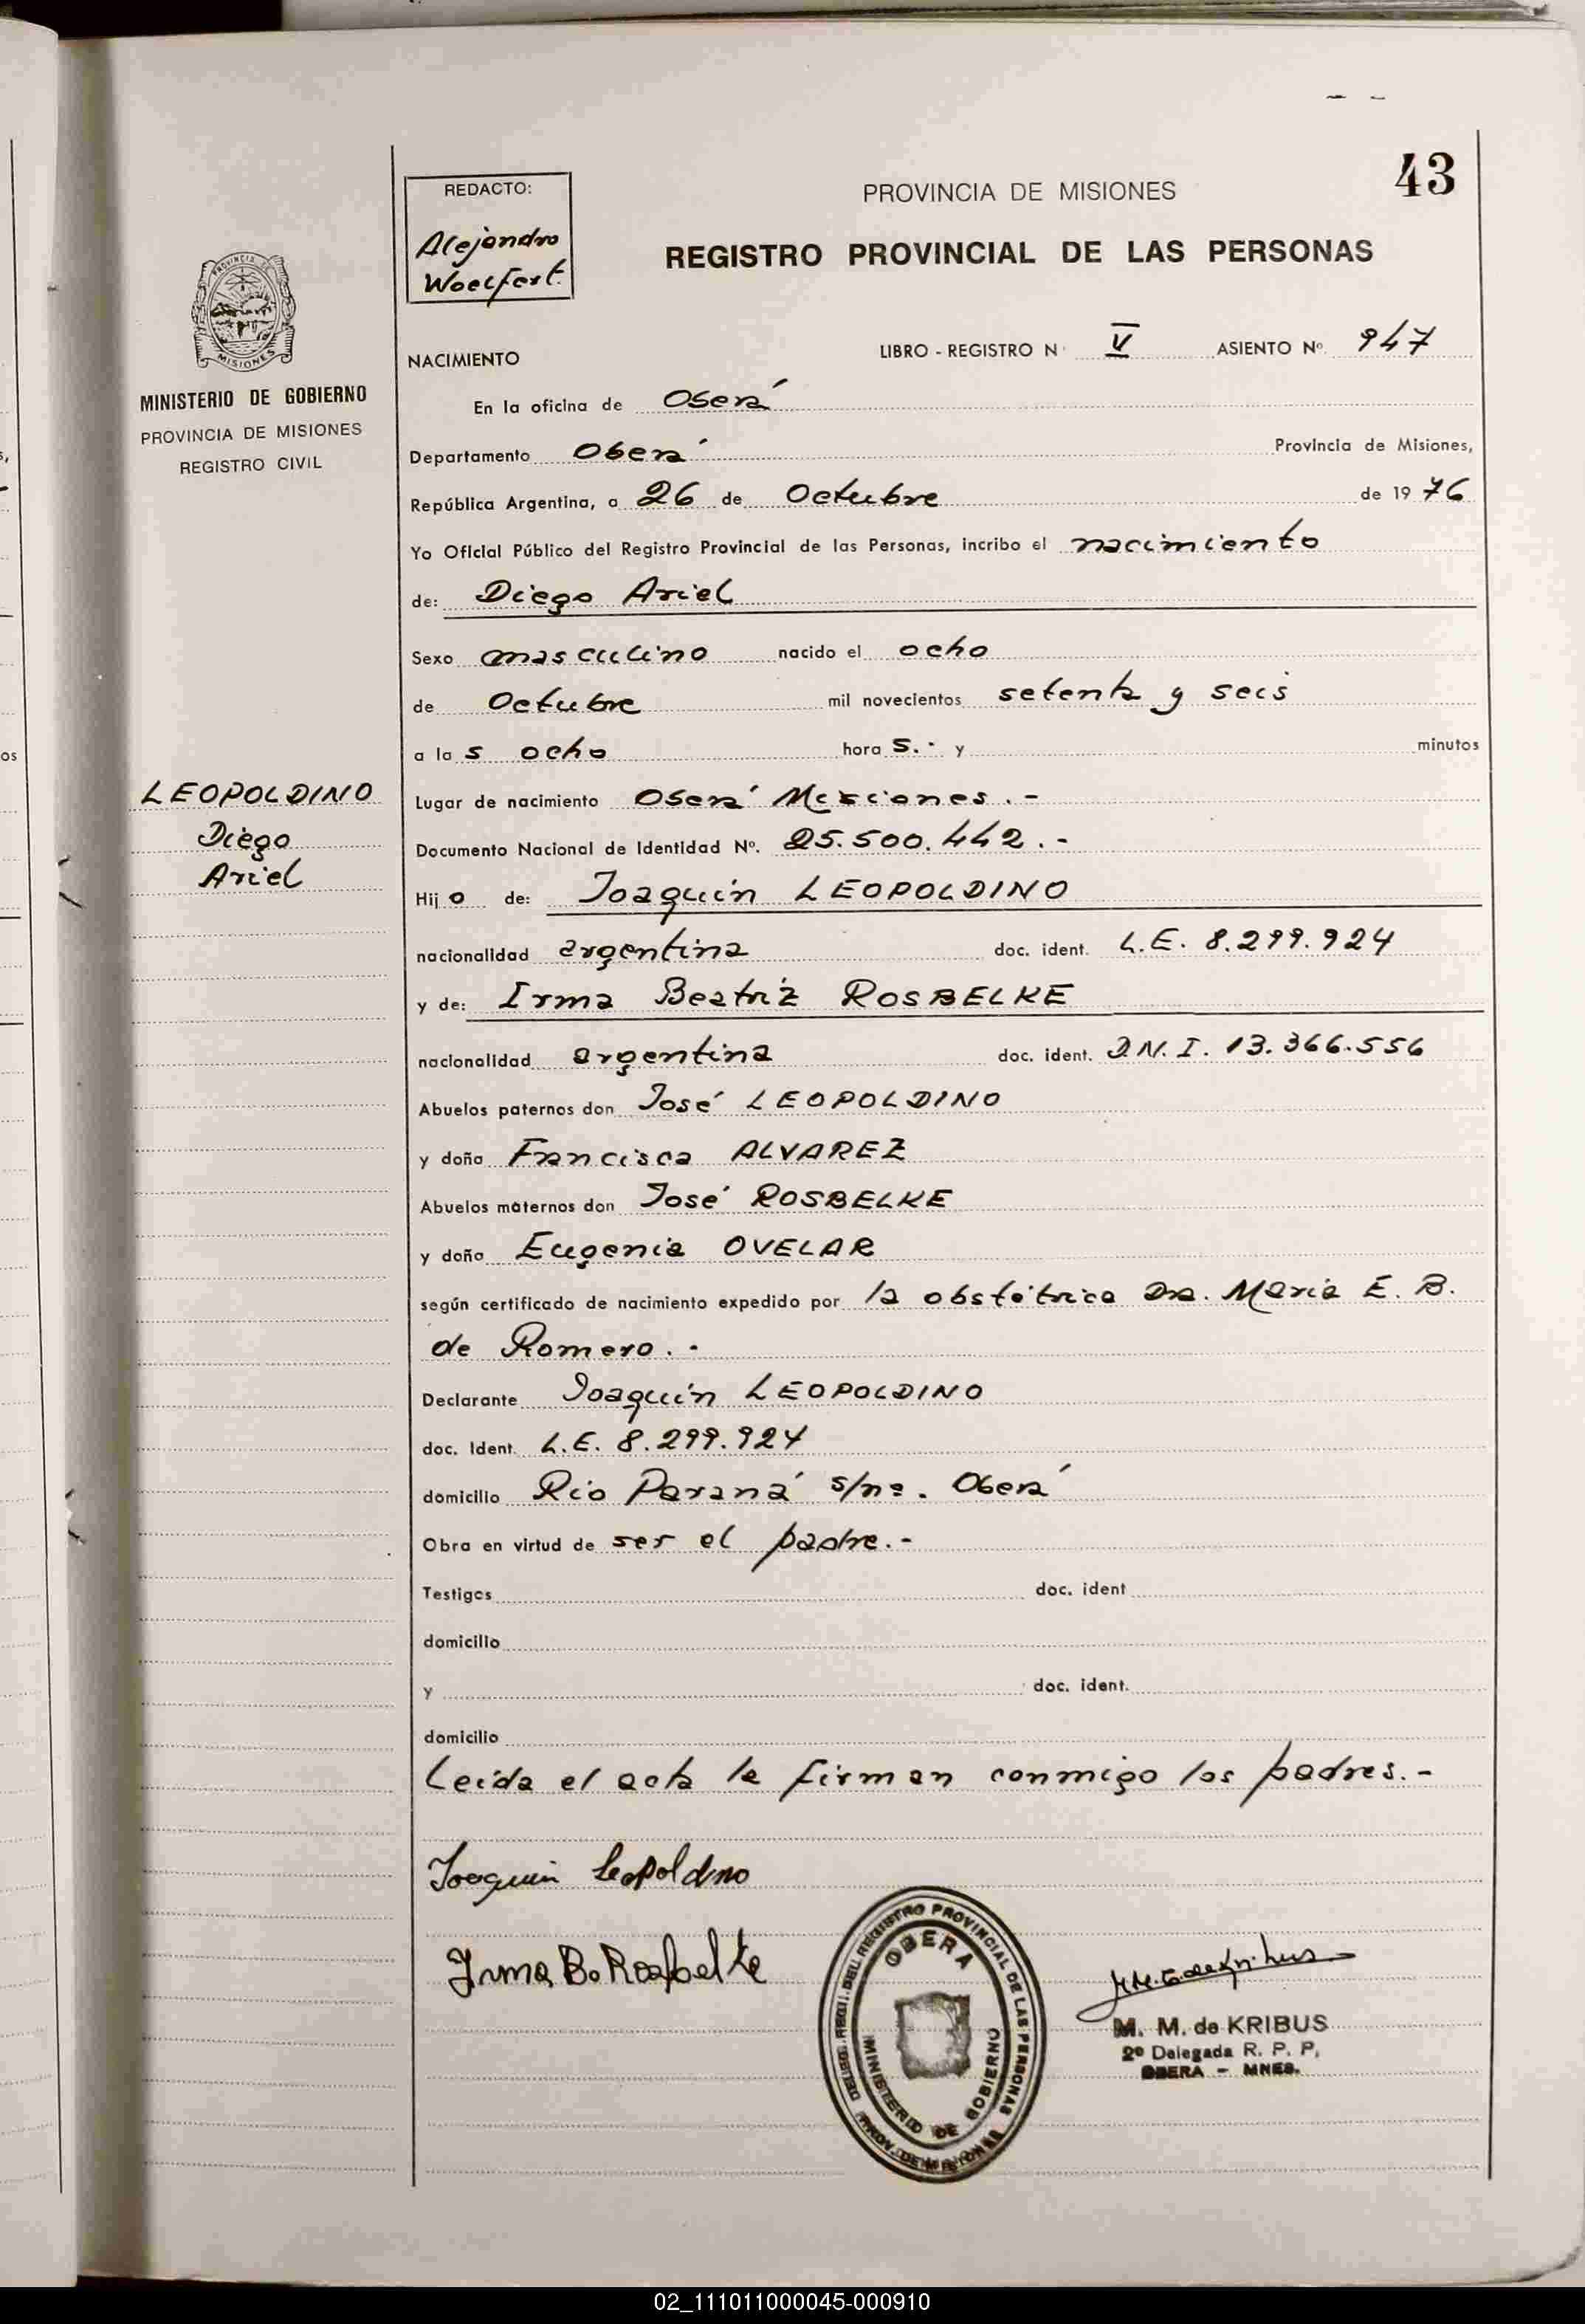 43
REDACTO:
Alejandro
Woelfert.
PROVINCIA DE MISIONES
REGISTRO PROVINCIAL DE LAS PERSONAS
PROVINCIA DE
MISIONES
MINISTERIO DE GOBIERNO
PROVINCIA DE MISIONES
REGISTRO CIVIL
NACIMIENTO LIBRO - REGISTRO N° V ASIENTO N° 947
En la oficina de Oberá
Departamento Oberá Provincia de Misiones,
República Argentina, a 26 de Octubre de 1976
Yo Oficial Público del Registro Provincial de las Personas, incribo el nacimiento
de: Diego Ariel
Sexo masculino nacido el ocho
de Octubre mil novecientos setenta y seis
a las ocho horas.- y minutos
Lugar de nacimiento Oberá Misiones.-
Documento Nacional de Identidad N°. 25.500.442.-
LEOPOLDINO
Diego
Ariel
Hijo de: Joaquín LEOPOLDINO
nacionalidad argentina doc. ident. L.E. 8.299.924
y de: Irma Beatriz ROSBELKE
nacionalidad argentina doc. ident. D.N.I. 13.366.556
Abuelos paternos don José LEOPOLDINO
y doña Francisca ALVAREZ
Abuelos maternos don José ROSBELKE
y doña Eugenia OVELAR
según certificado de nacimiento expedido por la obstétrica Dra. María E. B.
de Romero.-
Declarante Joaquín LEOPOLDINO
doc. Ident. L.E. 8.299.924
domicilio Río Paraná s/nº. Oberá
Obra en virtud de ser el padre.-
Testigos doc. ident
domicilio
y doc. ident.
domicilio
Leída el acta la firman conmigo los padres.-
Joaquin Leopoldino
Irma B. Rosbelke
DELEG. REGI. DEL REGISTRO PROVINCIAL DE LAS PERSONAS
OBERA
MINISTERIO DE GOBIERNO
PROV. DE MISIONES
M. M. de KRIBUS
2º Delegada R. P. P,
OBERA - MNES.
02_111011000045-000910